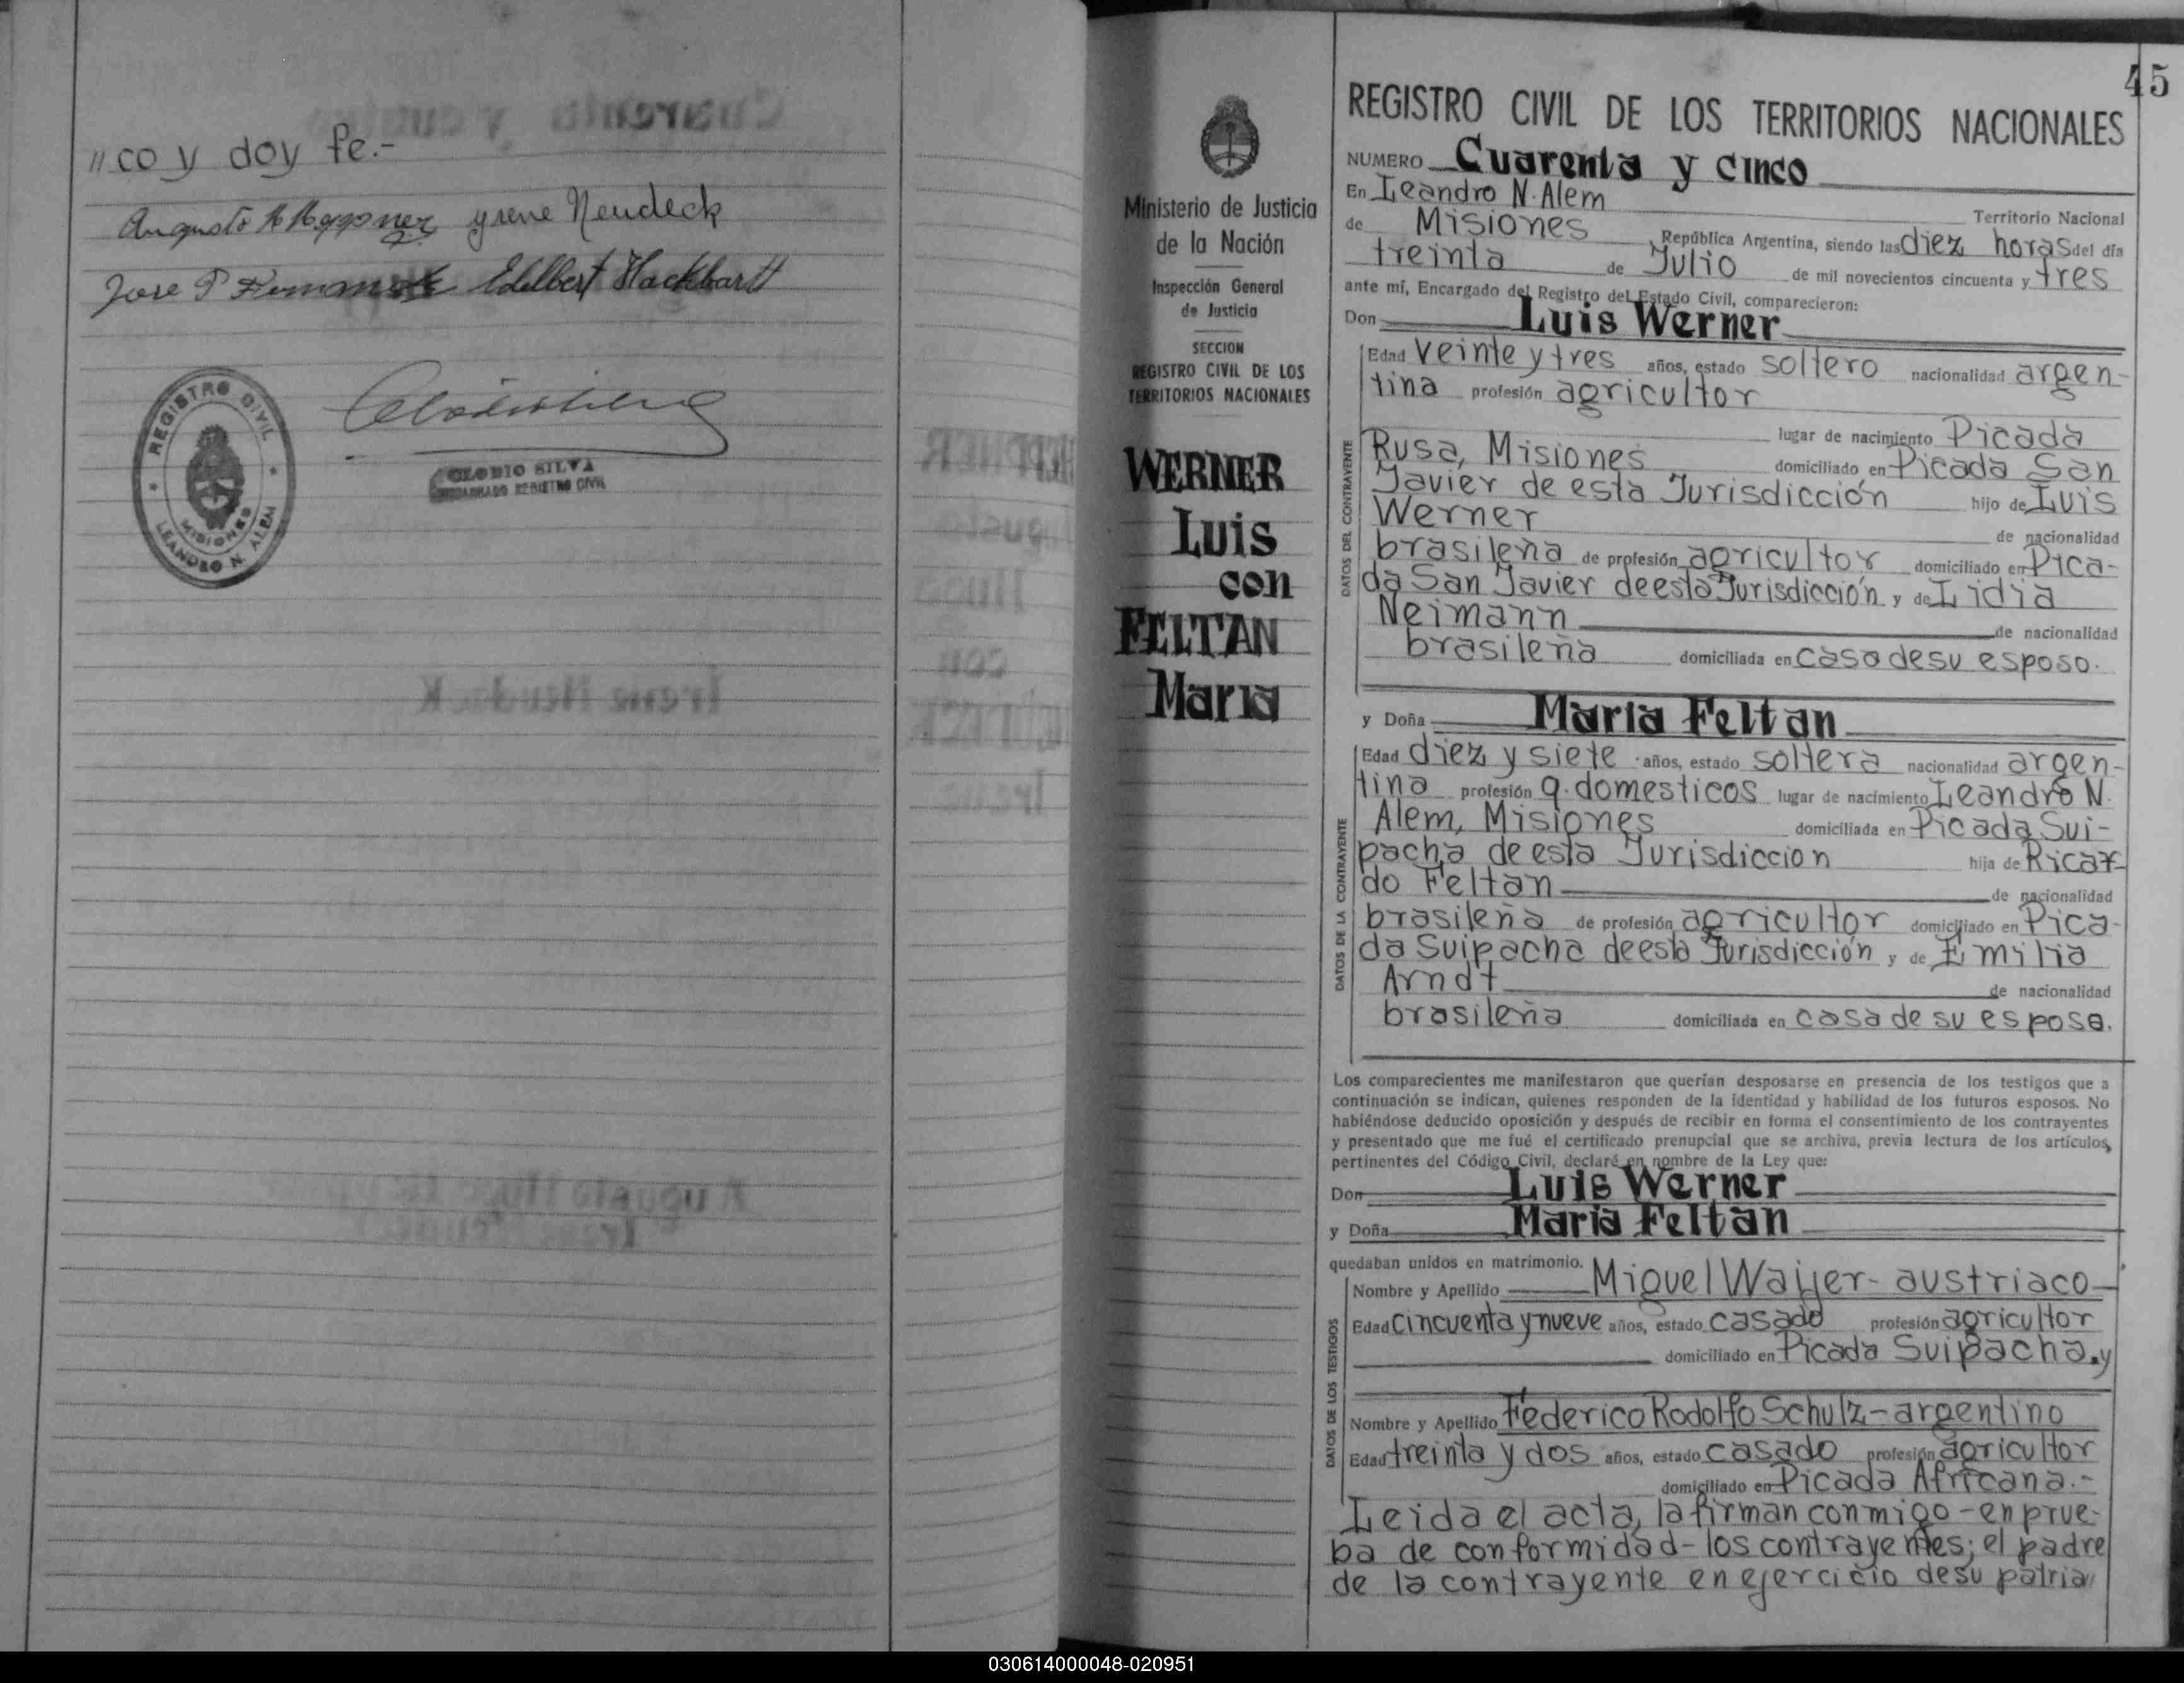 "co y doy fe.-
Augusto H Heppner yrene Neudeck
Jose P Edelbert Hackbartt
REGISTRO CIVIL
MISIONES
LEANDRO N. ALEM
CLODIO SILVA
ENCARGADO REGISTRO CIVIL
45
Ministerio de Justicia
de la Nación
Inspección General
de Justicia
SECCION
REGISTRO CIVIL DE LOS
TERRITORIOS NACIONALES
WERNER
Luis
con
FELTAN
Maria
REGISTRO CIVIL DE LOS TERRITORIOS NACIONALES
NUMERO Cuarenta y cinco
En Leandro N. Alem Territorio Nacional
de Misiones, República Argentina, siendo las diez horas del día
treinta de Julio de mil novecientos cincuenta y tres
ante mí, Encargado del Registro del Estado Civil, comparecieron:
Don Luis Werner
DATOS DEL CONTRAYENTE
Edad veinte y tres años, estado soltero nacionalidad argen-
tina profesión agricultor
lugar de nacimiento Picada
Rusa, Misiones domiciliado en Picada San
Javier de esta Jurisdicción hijo de Luis
Werner de nacionalidad
brasileña de profesión agricultor domiciliado en Pica-
da San Javier de esta Jurisdicción y de Lidia
Neimann de nacionalidad
brasileña domiciliada en casa de su esposo.
y Doña Maria Feltan
DATOS DE LA CONTRAYENTE
Edad diez y siete años, estado soltera nacionalidad argen-
tina profesión q. domesticos lugar de nacimiento Leandro N.
Alem, Misiones domiciliada en Picada Sui-
pacha de esta Jurisdiccion hija de Ricar-
do Feltan de nacionalidad
brasileña de profesión agricultor domiciliado en Pica-
da Suipacha de esta Jurisdicción y de Emilia
Arndt de nacionalidad
brasileña domiciliada en casa de su esposo.
Los comparecientes me manifestaron que querían desposarse en presencia de los testigos que a
continuación se indican, quienes responden de la identidad y habilidad de los futuros esposos. No
habiéndose deducido oposición y después de recibir en forma el consentimiento de los contrayentes
y presentado que me fué el certificado prenupcial que se archiva, previa lectura de los artículos,
pertinentes del Código Civil, declaré en nombre de la Ley que:
Don Luis Werner
y Doña Maria Feltan
quedaban unidos en matrimonio.
DATOS DE LOS TESTIGOS
Nombre y Apellido Miguel Waijer - austriaco
Edad cincuenta y nueve años, estado casado profesión agricultor
domiciliado en Picada Suipacha, y
Nombre y Apellido Federico Rodolfo Schulz - argentino
Edad treinta y dos años, estado casado profesión agricultor
domiciliado en Picada Africana.-
Leida el acta, la firman conmigo - en prue-
ba de conformidad - los contrayentes; el padre
de la contrayente en ejercicio de su patria"
030614000048-020951